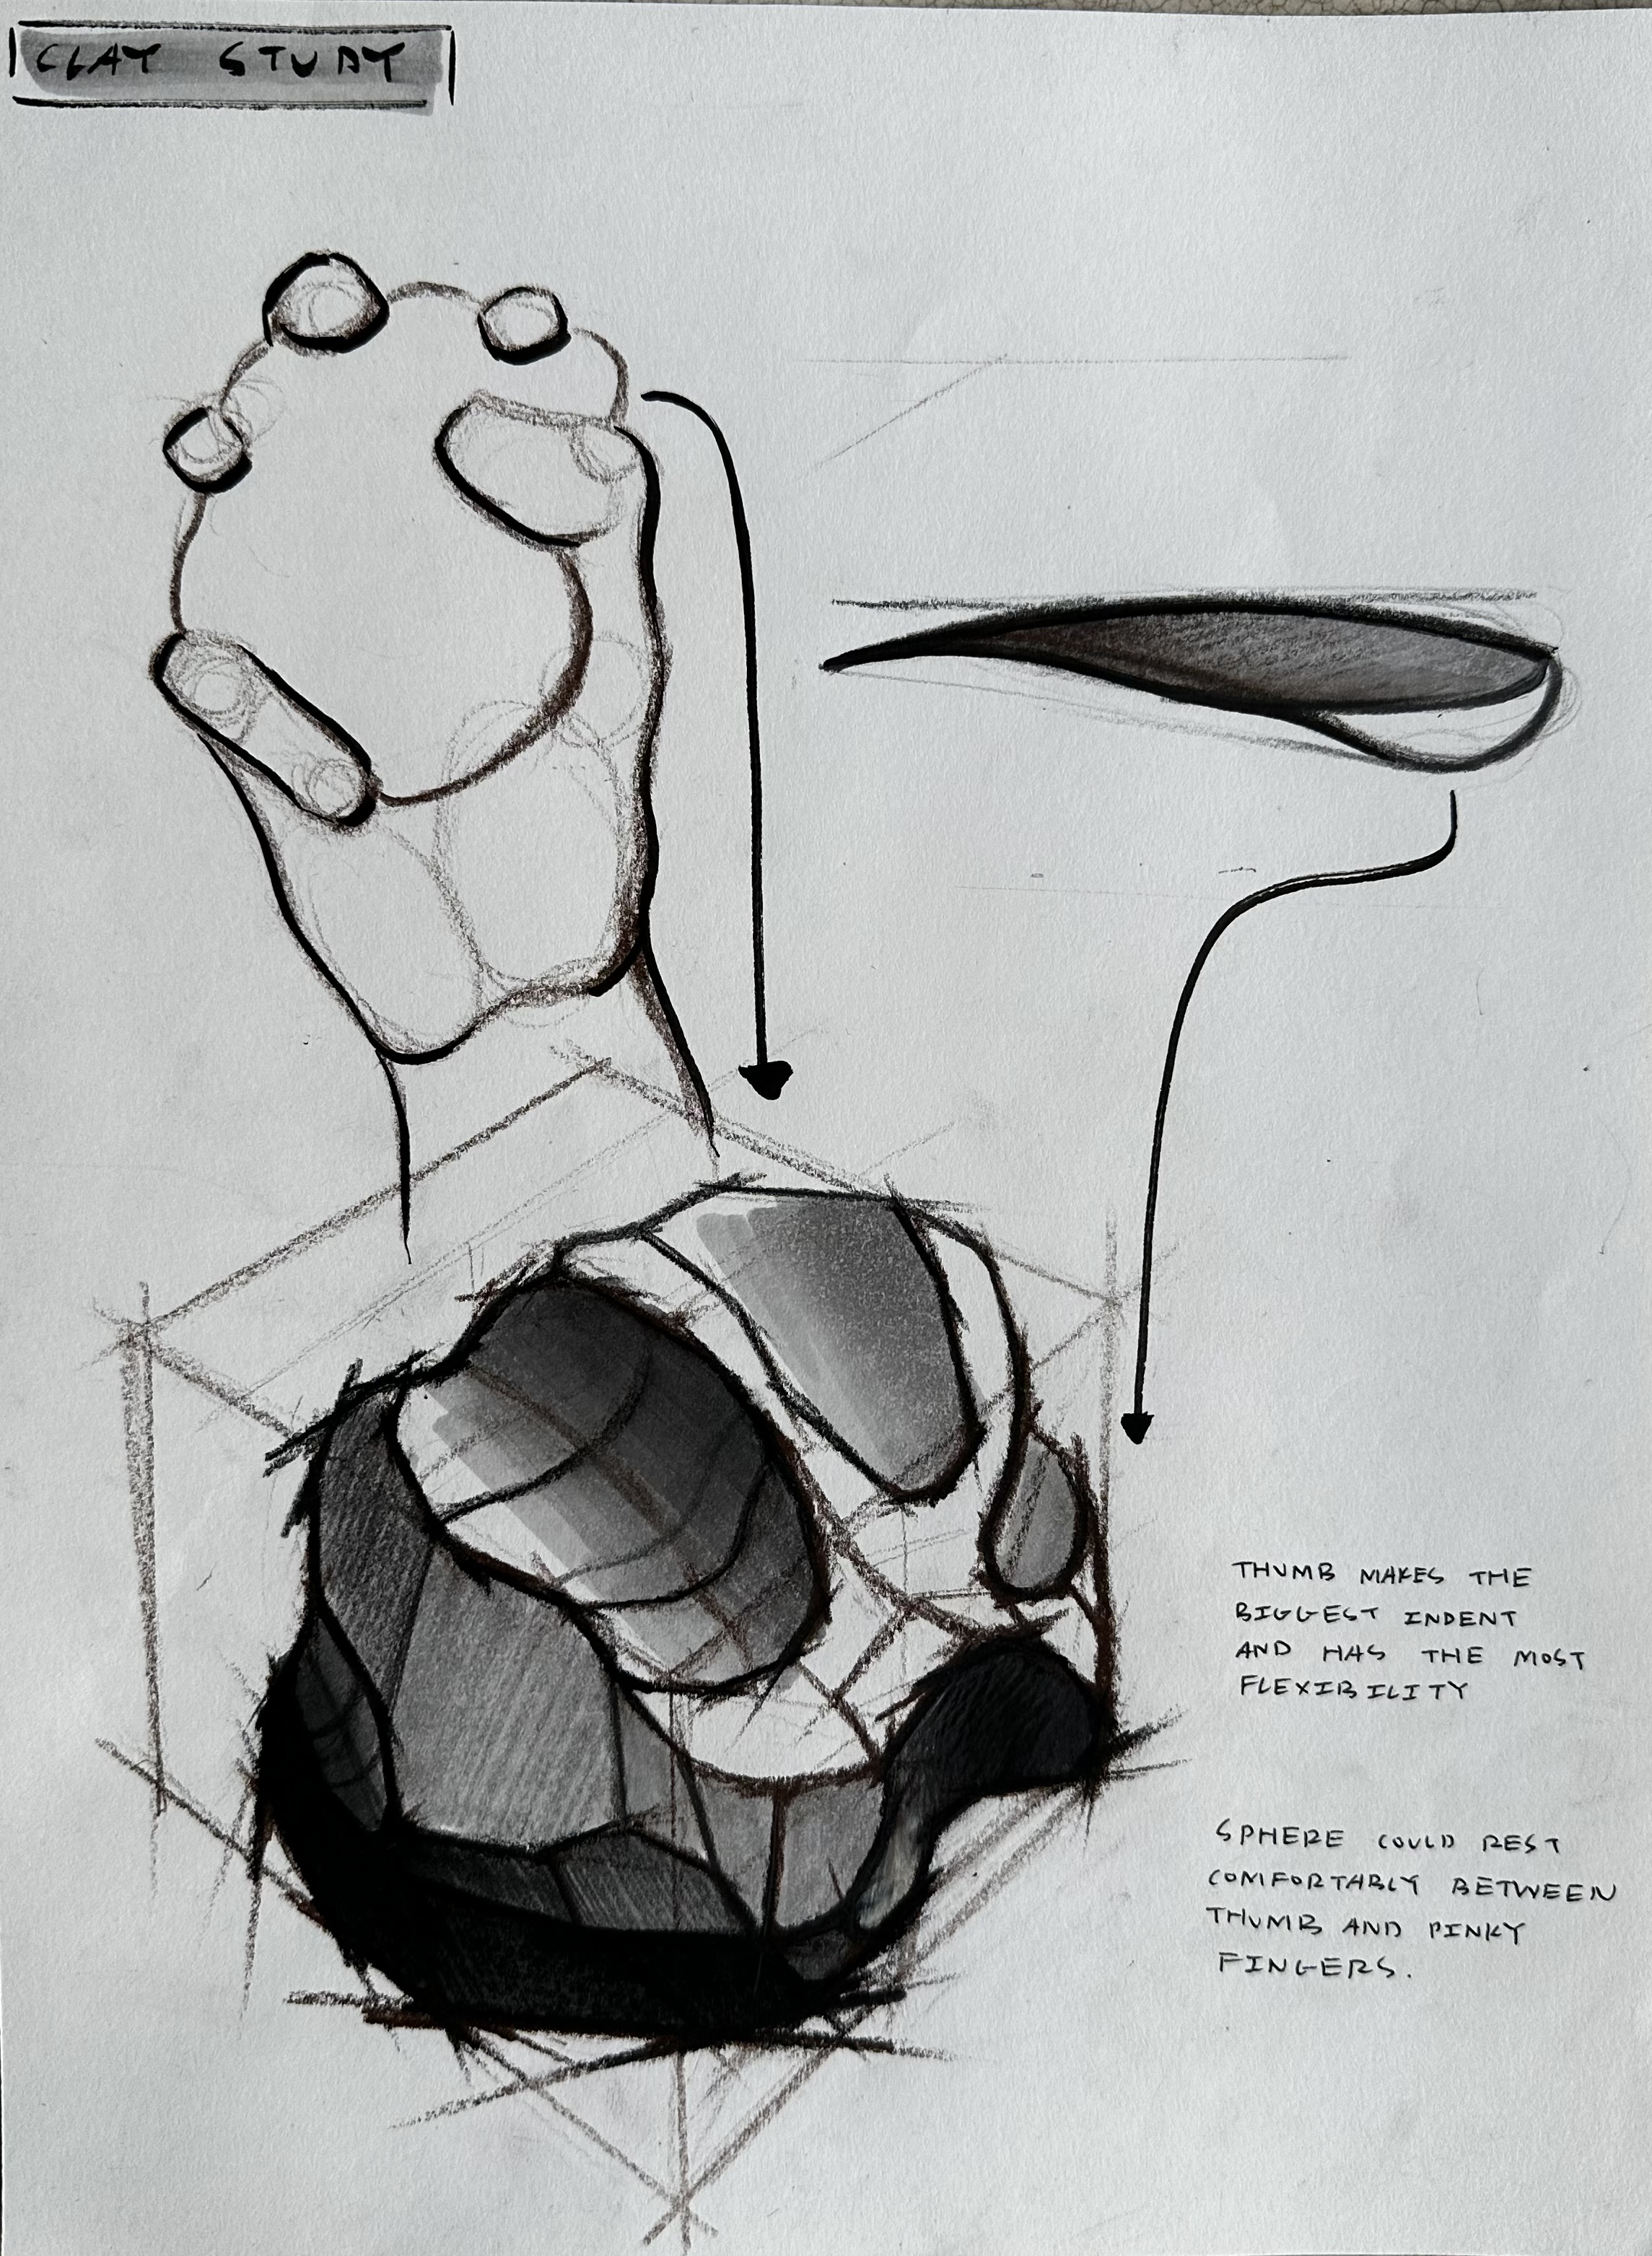 CLAY STUDY
THUMB MAKES THE
BIGGEST INDENT
AND HAS THE MOST
FLEXIBILITY
SPHERE COULD REST
COMFORTABLY BETWEEN
THUMB AND PINKY
FINGERS.